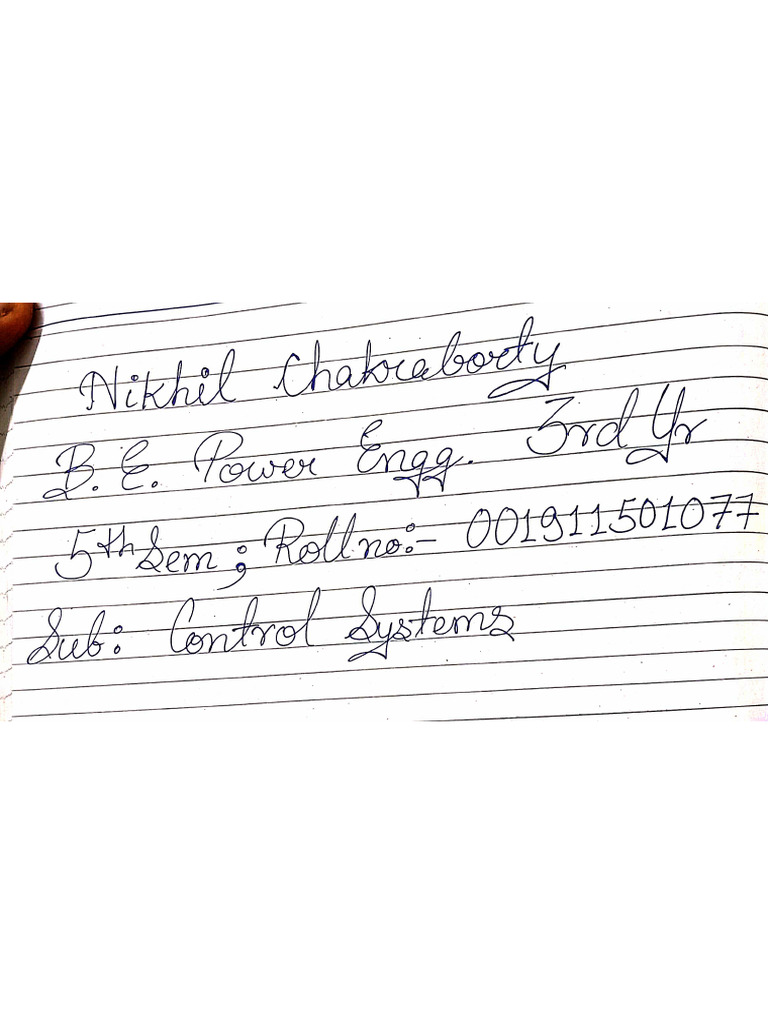 Nikhil Chakraborty
B.E. Power Engg. 3rd Yr
5th Sem; Roll no:- 001911501077
Sub: Control Systems